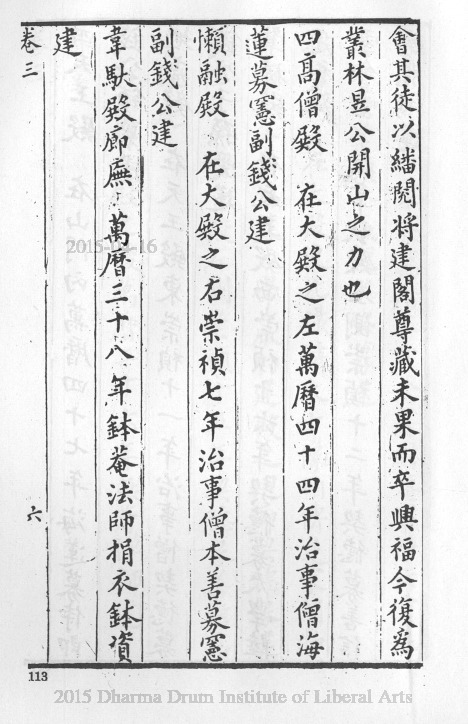 會其徒以繙閱将建閣尊藏未果而卒興福今復爲
叢林昱公開山之力也
四高僧殿　在大殿之左萬曆四十四年治事僧海
蓮募憲副錢公建
懶融殿　在大殿之右崇禎七年治事僧本善募憲
副錢公建
韋馱殿廊廡　萬曆三十八年鉢菴法師捐衣鉢資
建
卷三　六
113
2015 Dharma Drum Institute of Liberal Arts